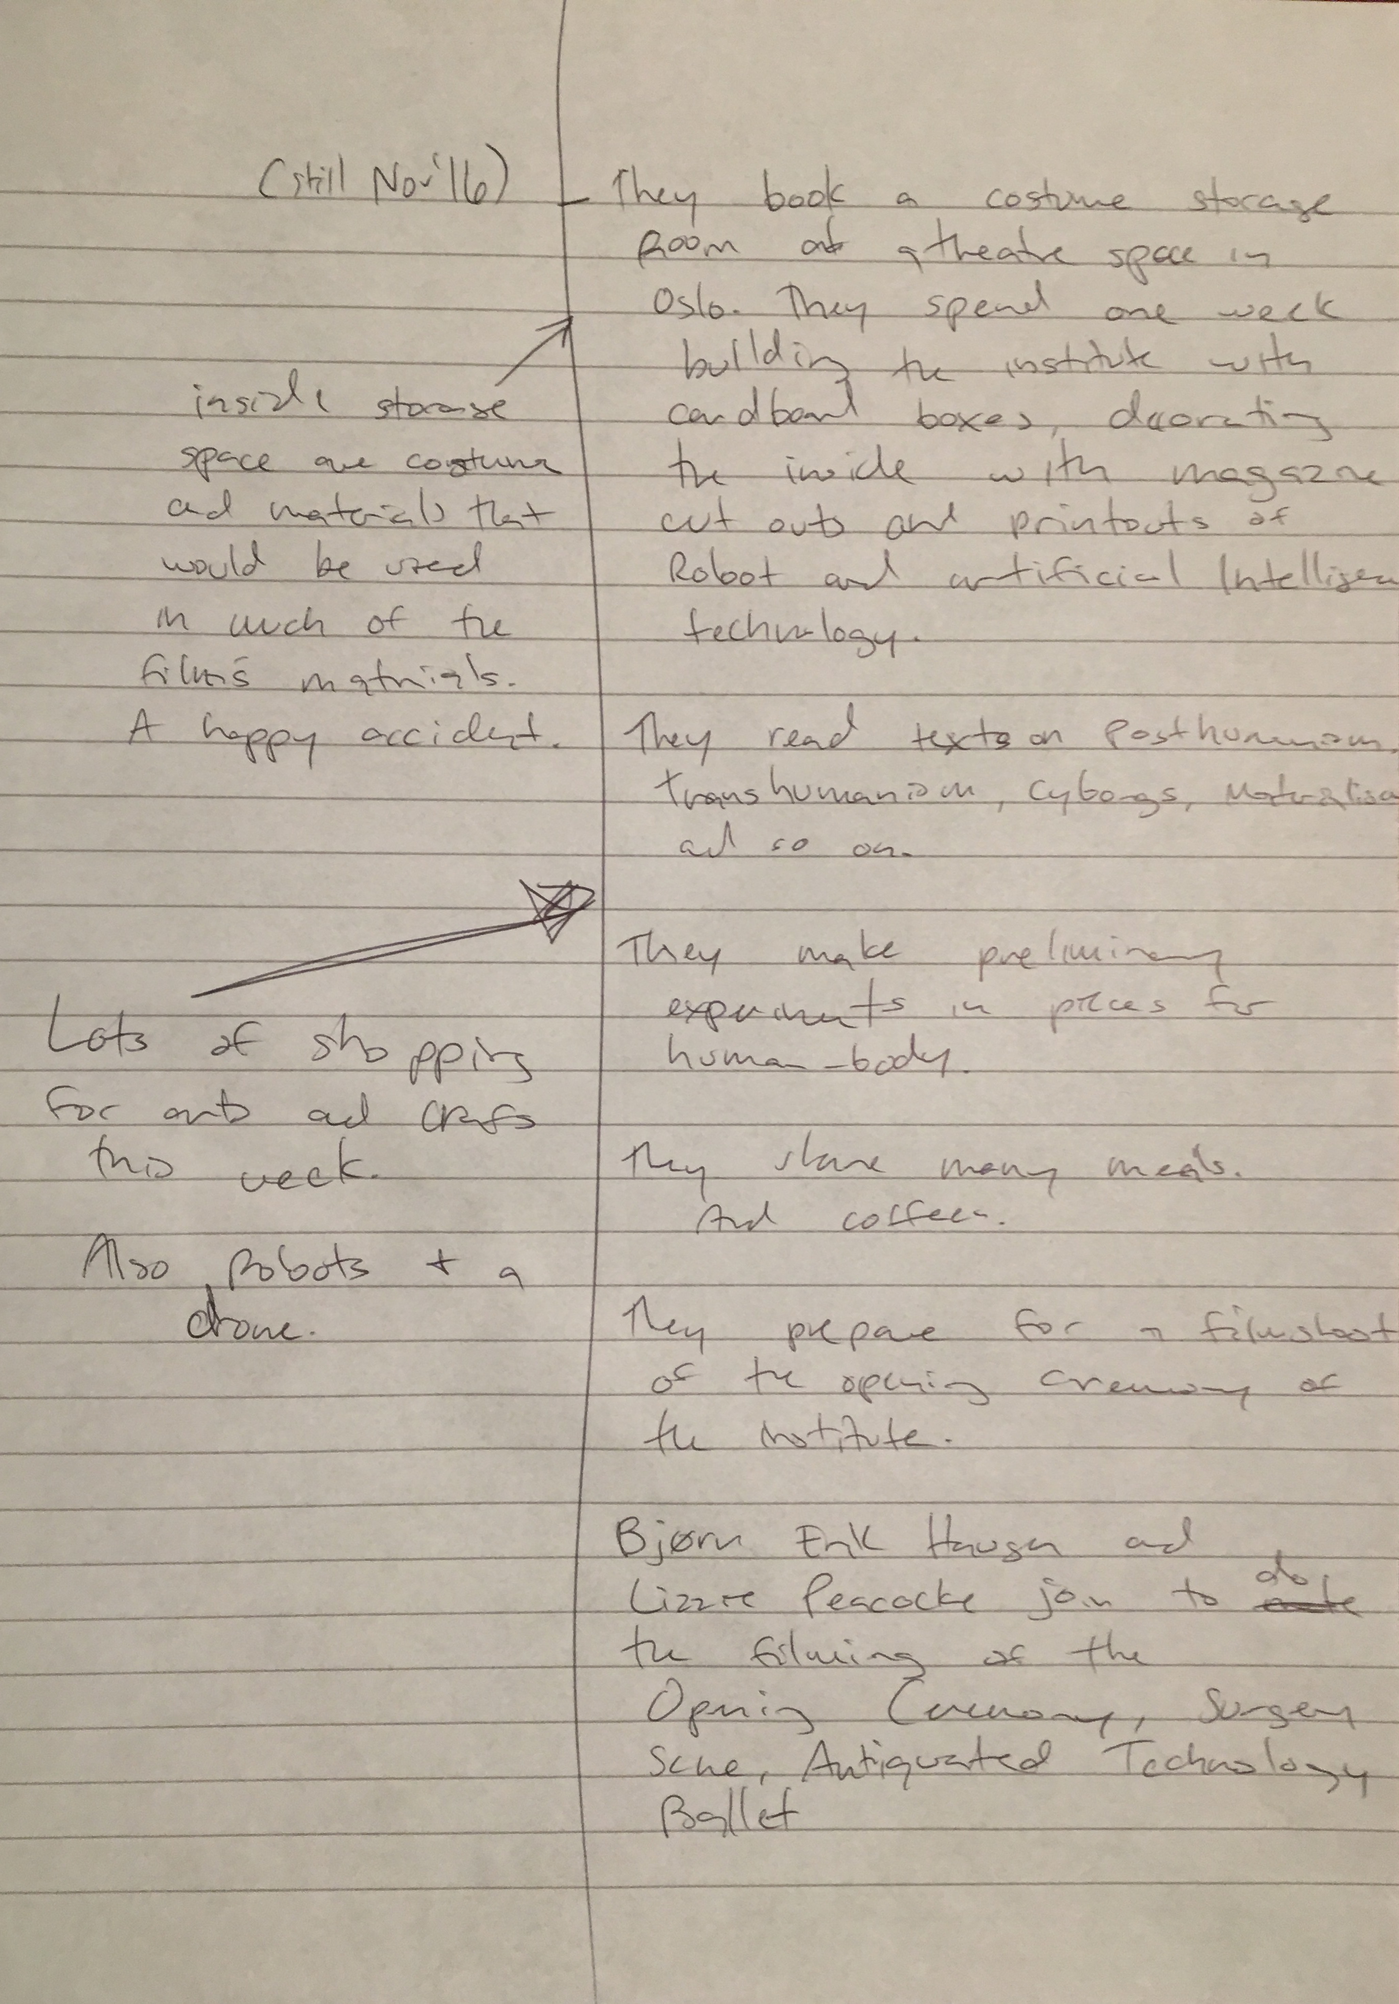 (still Nov '16)
inside storage
space are costumes
and materials that
would be used
in much of the
film's materials.
A happy accident.
Lots of shopping
for arts ad crafs
this week.
Also Robots + a
drone.
They book a costume storage
Room at a theatre space in
Oslo. They spend one week
building the institute with
cardboard boxes, decorating
the inside with magazine
cut outs and printouts of
Robot and artificial Intelligen
technology.
They read texts on Posthumanism,
transhumanism, Cyborgs, Materialis
ad so on.
They make preliminary
experiments in pieces for
human-body.
They share many meals.
And coffees.
They prepare for a filmshoot
of the opening ceremony of
the institute.
Bjørn Erik Haugen and
Lizzie Peacocke join to do
the filming of the
Opening Ceremony, Surgery
Scene, Antiquated Technology
Ballet